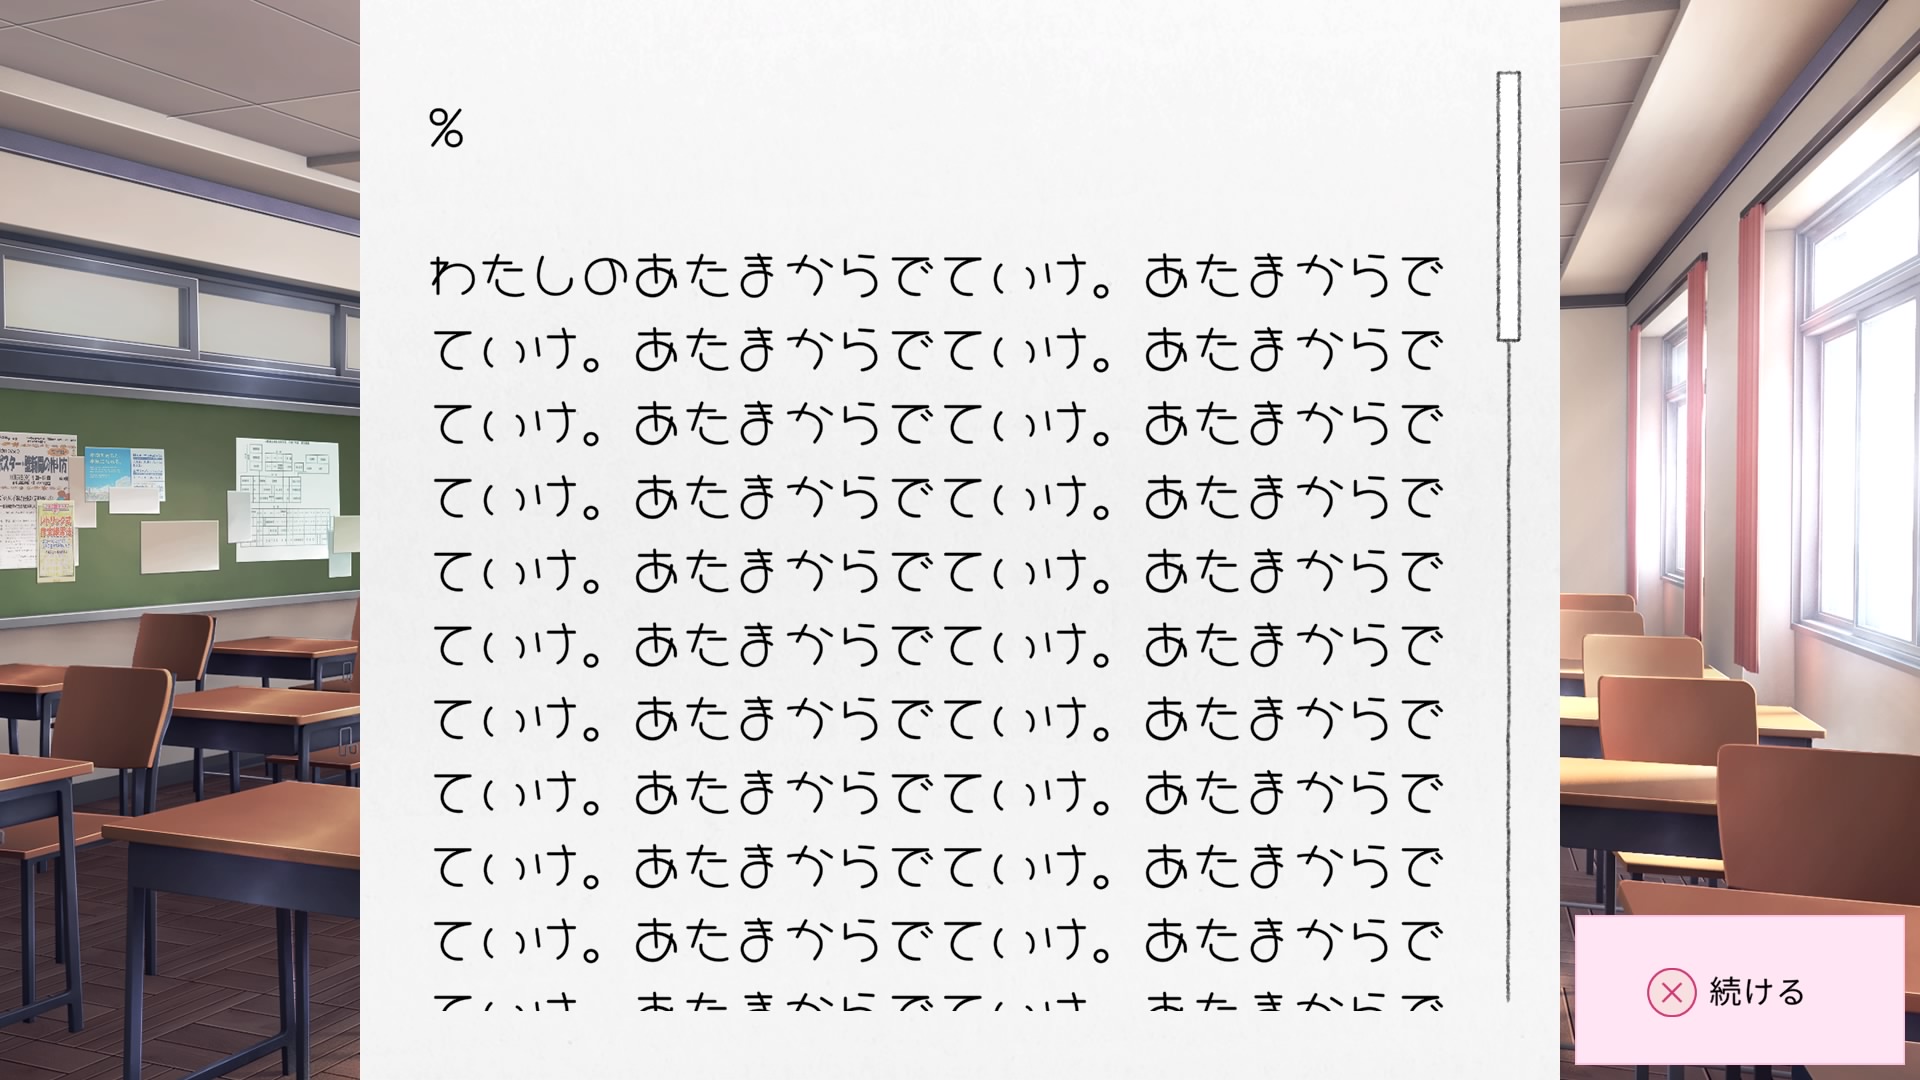 %
わたしのあたまからでていけ。あたまからで
ていけ。あたまからでていけ。あたまからで
ていけ。あたまからでていけ。あたまからで
ていけ。あたまからでていけ。あたまからで
ていけ。あたまからでていけ。あたまからで
ていけ。あたまからでていけ。あたまからで
ていけ。あたまからでていけ。あたまからで
ていけ。あたまからでていけ。あたまからで
ていけ。あたまからでていけ。あたまからで
ていけ。あたまからでていけ。あたまからで
ていけ。あたまからでていけ。あたまからで
続ける